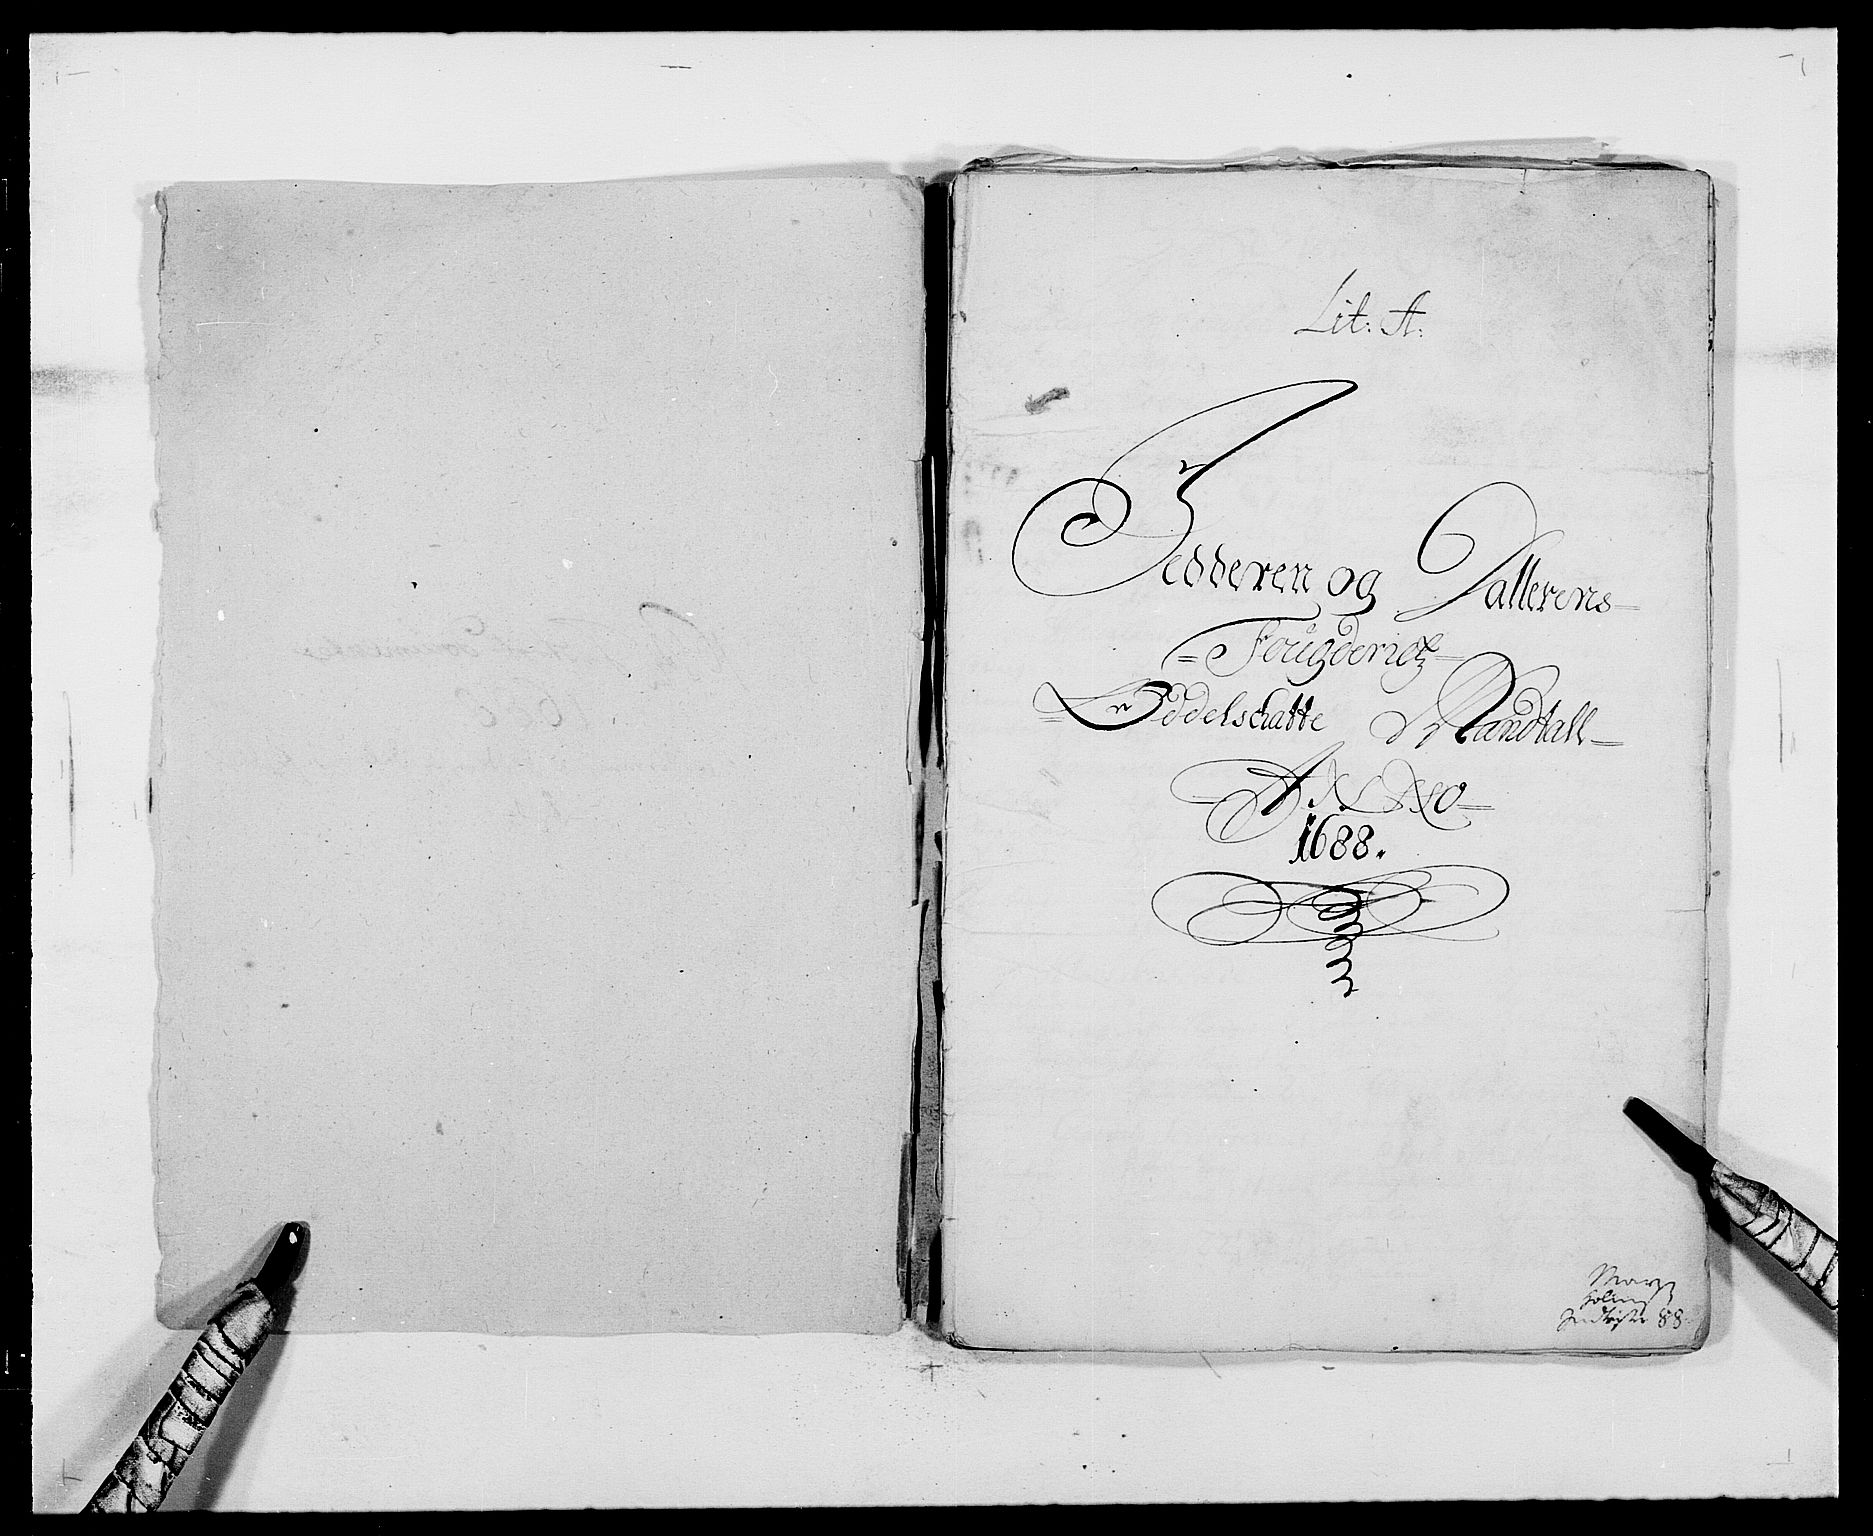 Lit: A:
Jedderen og Dallerens
Fougderietz
Oddelschatte Mandtall
ANNO
1688.
88